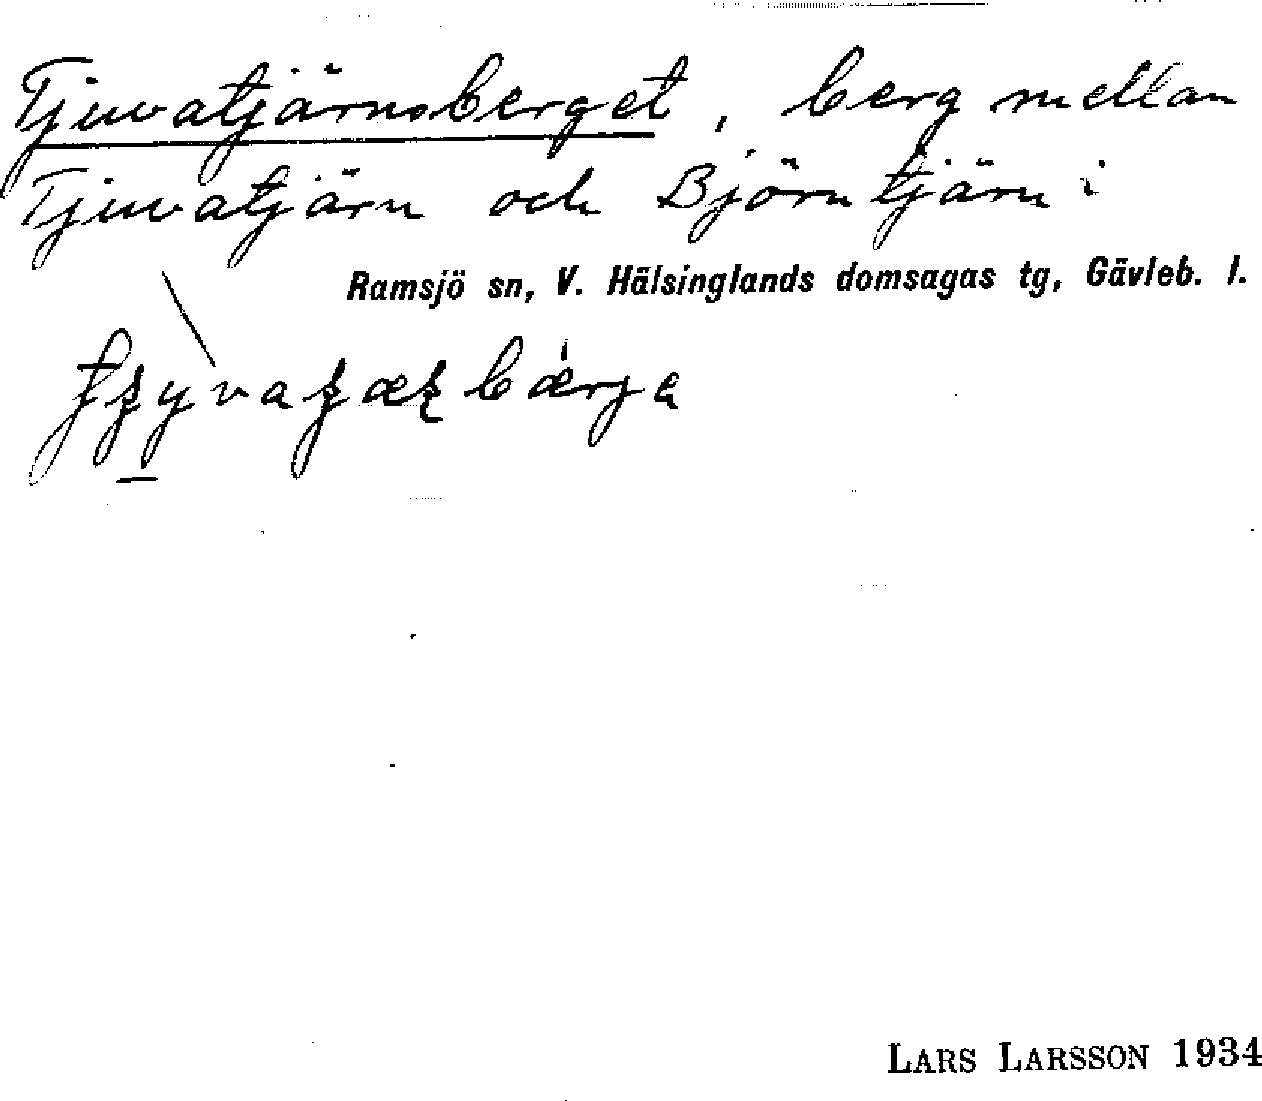 Tjuvatjärnsberget, berg mellan
Tjuvatjärn och Björntjärn i
Ramsjö sn, V. Hälsinglands domsagas tg, Gävleb. l.
LARS LARSSON 1934